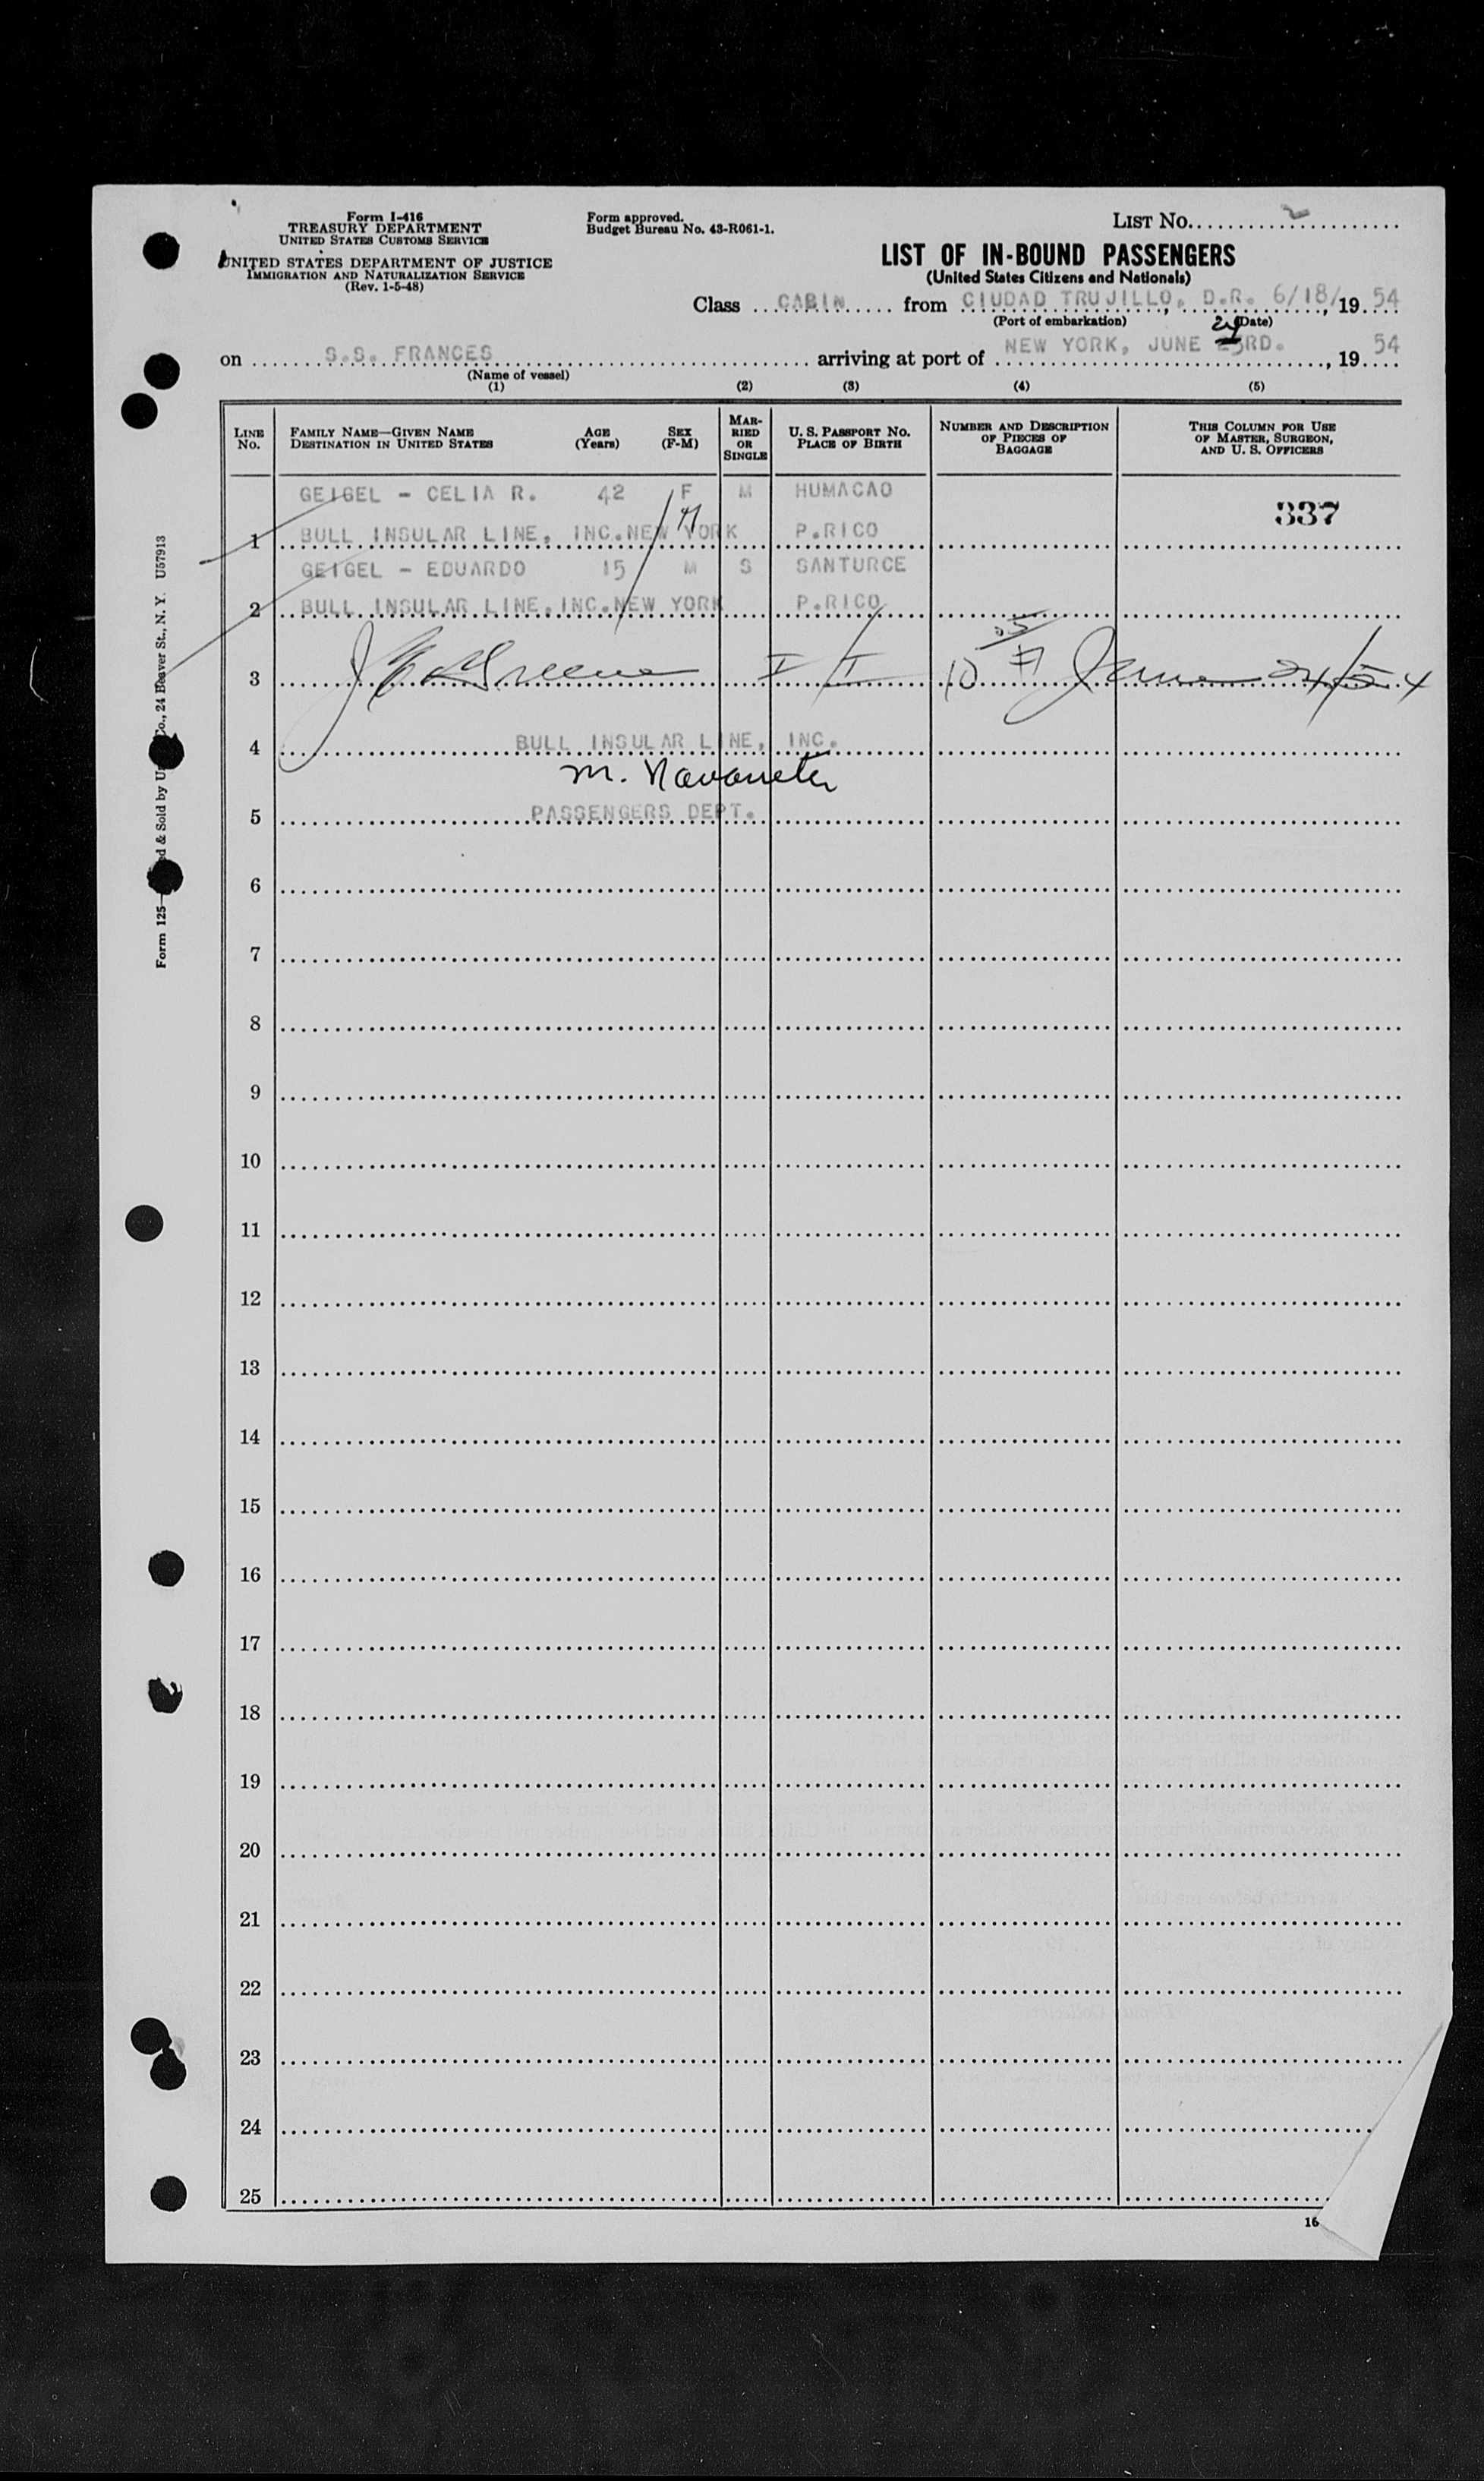 Form I-416
TREASURY DEPARTMENT
UNITED STATES CUSTOMS SERVICE
UNITED STATES DEPARTMENT OF JUSTICE
IMMIGRATION AND NATURALIZATION SERVICE
(Rev. 1-5-48)
Form approved.
Budget Bureau No. 43-R061-1.
LIST No. 2
LIST OF IN-BOUND PASSENGERS
(United States Citizens and Nationals)
Class CABIN from CIUDAD TRUJILLO, D.R. 6/18/, 1954
(Port of embarkation) (Date)
24
on S.S. FRANCES arriving at port of NEW YORK, JUNE 23RD., 1954
(Name of vessel)
(1) (2) (3) (4) (5)
LINE No. FAMILY NAME—GIVEN NAME DESTINATION IN UNITED STATES AGE (Years) SEX (F-M) MARRIED OR SINGLE U. S. PASSPORT No. PLACE OF BIRTH NUMBER AND DESCRIPTION OF PIECES OF BAGGAGE THIS COLUMN FOR USE OF MASTER, SURGEON, AND U. S. OFFICERS
GEIGEL - CELIA R. 42 F M HUMACAO
337
1 BULL INSULAR LINE, INC. NEW YORK P.RICO
GEIGEL - EDUARDO 15 M S SANTURCE
2 BULL INSULAR LINE, INC. NEW YORK P.RICO
3 Greene I I 10 June 24/54
4 BULL INSULAR LINE, INC.
M.
5 PASSENGERS DEPT.
6
7
8
9
10
11
12
13
14
15
16
17
18
19
20
21
22
23
24
25
16
Form 125
ed & Sold by
Co., 24 Beaver St., N. Y. U57913